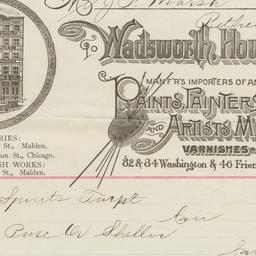 J. P. Marsh
To
Wadsworth How
MANF'RS IMPORTERS OF AN
PAINTS, PAINTERS
AND ARTISTS M
VARNISHES
82 & 84 Washington & 46 Frien
RIES:
St., Malden.
on St., Chicago.
SH WORKS:
St., Malden.
Spirits Turpt
Can
Pure Or Shellac